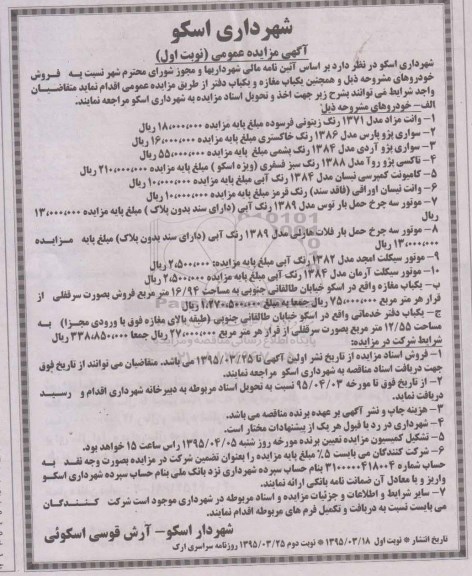 شهرداری اسکو
آگهی مزایده عمومی (نوبت اول)
شهرداری اسکو در نظر دارد بر اساس آئین نامه مالی شهرداریها و مجوز شورای محترم شهر نسبت به فروش
خودروهای مشروحه ذیل و همچنین یکباب مغازه و یکباب دفتر از طریق مزایده عمومی اقدام نماید متقاضیان
واجد شرایط می توانند بشرح زیر جهت اخذ و تحویل اسناد مزایده به شهرداری اسکو مراجعه نمایند.
الف- خودروهای مشروحه ذیل:
۱- وانت مزدا مدل ۱۳۷۱ رنگ زیتونی فرسوده مبلغ پایه مزایده ۱۸،۰۰۰،۰۰۰ ریال
۲- سواری پژو پارس مدل ۱۳۸۶ رنگ خاکستری مبلغ پایه مزایده ۱۶۰،۰۰۰،۰۰۰ ریال
۳- سواری پژو آردی مدل ۱۳۸۴ رنگ یشمی مبلغ پایه مزایده ۵۵،۰۰۰،۰۰۰ ریال
۴- تاکسی پژو روآ مدل ۱۳۸۸ رنگ سبز فسفری (ویژه اسکو ) مبلغ پایه مزایده ۲۱۰،۰۰۰،۰۰۰ ریال
۵- کامیونت کمپرسی نیسان مدل ۱۳۸۴ رنگ آبی مبلغ پایه مزایده ۱۰۰،۰۰۰،۰۰۰ ریال
۶- وانت نیسان اوراقی (فاقد سند) رنگ قرمز مبلغ پایه مزایده ۱۰،۰۰۰،۰۰۰ ریال
۷- موتور سه چرخ حمل بار توس مدل ۱۳۸۹ رنگ آبی (دارای سند بدون پلاک ) مبلغ پایه مزایده ۱۳،۰۰۰،۰۰۰
ریال
۸- موتور سه چرخ حمل بار فلات مدل ۱۳۸۹ رنگ آبی (دارای سند بدون پلاک) مبلغ پایه مزایده
۱۳،۰۰۰،۰۰۰ ریال
۹- موتور سیکلت امجد مدل ۱۳۸۲ رنگ آبی مبلغ پایه مزایده: ۲،۵۰۰،۰۰۰ ریال
۱۰- موتور سیکلت آرمان مدل ۱۳۸۴ رنگ آبی مبلغ پایه مزایده ۲،۵۰۰،۰۰۰ ریال
ب- یکباب مغازه واقع در اسکو خیابان طالقانی جنوبی به مساحت ۱۶/۹۴ متر مربع فروش بصورت سرقفلی از
قرار هر متر مربع ۷۵،۰۰۰،۰۰۰ ریال جمعا به مبلغ ۱،۲۷۰،۵۰۰،۰۰۰ ریال
ج- یکباب دفتر خدماتی واقع در اسکو خیابان طالقانی جنوبی (طبقه بالای مغازه فوق با ورودی مجزا) به
مساحت ۱۲/۵۵ متر مربع بصورت سرقفلی از قرار هر متر مربع ۲۷،۰۰۰،۰۰۰ ریال جمعا ۳۳۸،۸۵۰،۰۰۰ ریال
شرایط شرکت در مزایده:
۱- فروش اسناد مزایده از تاریخ نشر اولین آگهی تا ۱۳۹۵/۰۳/۲۵ می باشد. متقاضیان می توانند از تاریخ فوق
جهت دریافت اسناد مناقصه به شهرداری اسکو مراجعه نمایند.
۲- از تاریخ فوق تا مورخه ۹۵/۰۴/۰۳ نسبت به تحویل اسناد مربوطه به دبیرخانه شهرداری اقدام و رسید
دریافت نمایند.
۳- هزینه چاپ و نشر آگهی بر عهده برنده مناقصه می باشد.
۴- شهرداری در رد یا قبول هر یک از پیشنهادات مختار است.
۵- تشکیل کمیسیون مزایده تعیین برنده مورخه روز شنبه ۱۳۹۵/۰۴/۰۵ راس ساعت ۱۵ خواهد بود.
۶- شرکت کنندگان می بایست ۵٪ مبلغ پایه مزایده را بعنوان تضمین شرکت در مزایده بصورت وجه نقد به
حساب شماره ۳۱۰۰۰۰۰۴۱۸۰۰۴ بنام حساب سپرده شهرداری نزد بانک ملی بنام حساب سپرده شهرداری اسکو
واریز و یا معادل آن ضمانت نامه بانکی ارائه نمایند.
۷- سایر شرایط و اطلاعات و جزئیات مزایده و اسناد مربوطه در شهرداری موجود است شرکت کنندگان
می بایست نسبت به دریافت و تکمیل فرم های مربوطه اقدام نمایند.
شهردار اسکو- آرش قوسی اسکوئی
تاریخ انتشار * نوبت اول ۱۳۹۵/۰۳/۱۸ * نوبت دوم ۱۳۹۵/۰۳/۲۵ روزنامه سراسری ارک